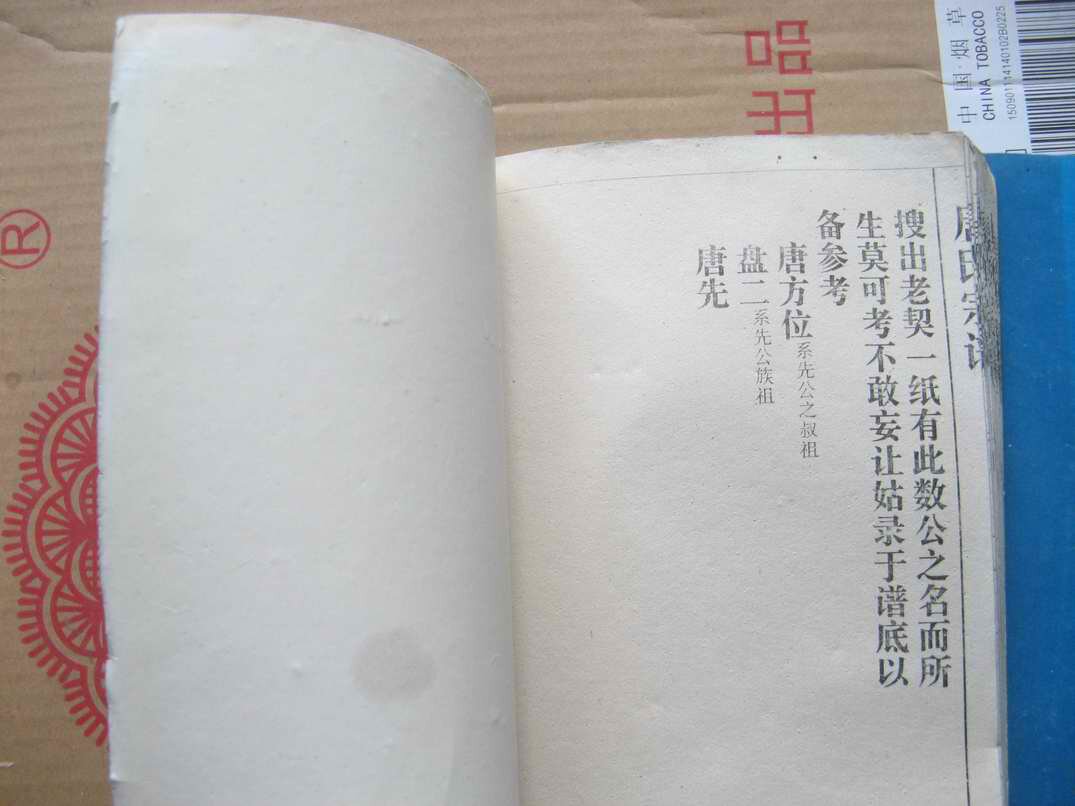 唐氏宗谱
搜出老契一纸有此数公之名而所
生莫可考不敢妄让姑录于谱底以
备参考
唐方位系先公之叔祖
盘二系先公族祖
唐先
出品
中国·烟草
CHINA TOBACCO
®